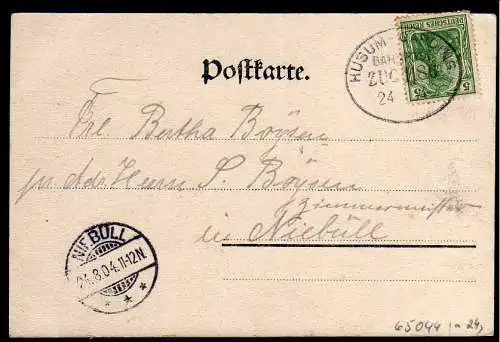 Postkarte.
HUSUM
BAHN
ZUG
24
DEUTSCHES REICH
5 5
Frl Bertha Boysen
pr Adr Herrn P. Boysen
Zimmermeister
in Niebüll
NIEBÜLL
24.8.04. 11-12N.
65044
24,